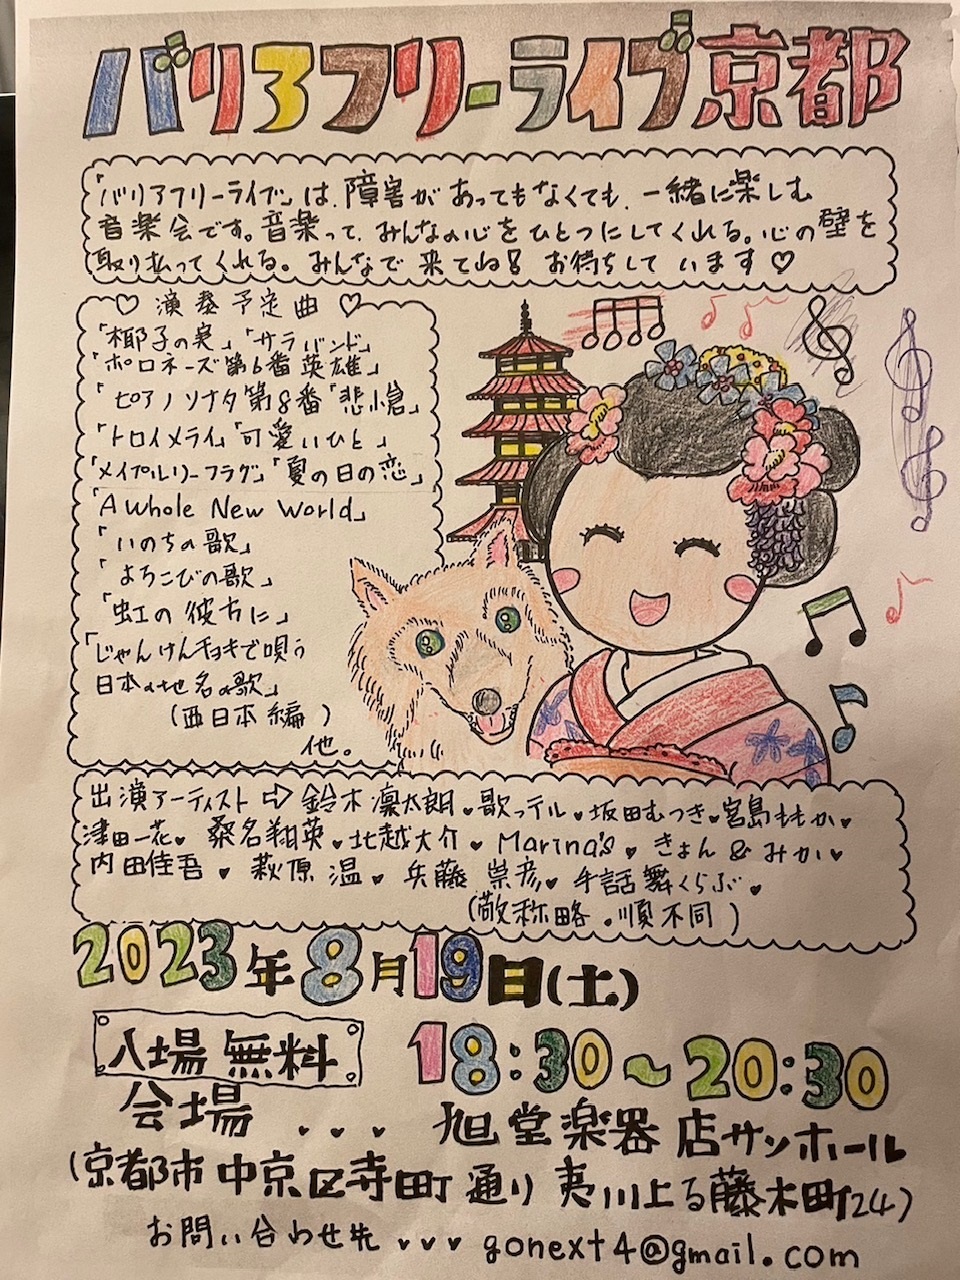 バリアフリーライブ京都
「バリアフリーライブ」は、障害があってもなくても、一緒に楽しむ
音楽会です。音楽って、みんなの心をひとつにしてくれる。心の壁を
取り払ってくれる。みんなで来てね!! お待ちしています♡
♡ 演奏予定曲 ♡
「椰子の実」「サラバンド」
「ポロネーズ第6番英雄」
「ピアノソナタ第8番「悲愴」
「トロイメライ」「可愛いひと」
「メイプルリーフラグ」「夏の日の恋」
「A Whole New World」
「いのちの歌」
「よろこびの歌」
「虹の彼方に」
「じゃんけんチョキで唄う
日本の地名の歌」
(西日本編)
他。
出演アーティスト⇨鈴木凛太朗♥歌っテル♥坂田むつき♥宮島ももか♥
津田一花♥桑名翔英♥北越大介♥Marina's♥きょん&みか♥
内田佳吾♥萩原温♥兵藤崇彦♥手話舞くらぶ♥
(敬称略。順不同)
2023年8月19日(土)
入場無料 18:30～20:30
会場♥♥♥旭堂楽器店サンホール
(京都市中京区寺町通り夷川上る藤木町24)
お問い合わせ先♥♥♥gonext4@gmail.com